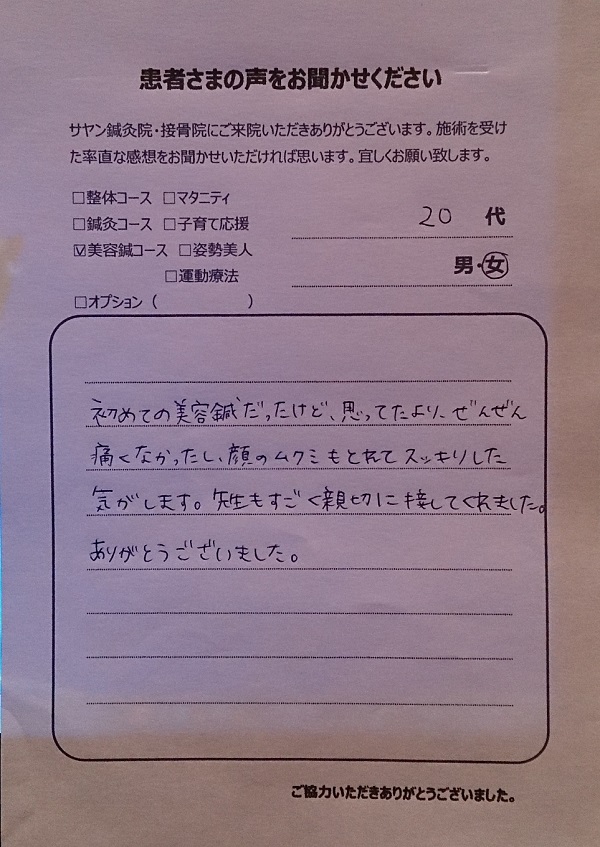 患者さまの声をお聞かせください
サヤン鍼灸院・接骨院にご来院いただきありがとうございます。施術を受け
た率直な感想をお聞かせいただければ思います。宜しくお願い致します。
□整体コース □マタニティ
□鍼灸コース □子育て応援
☑美容鍼コース □姿勢美人
□運動療法
□オプション（　　　　　　）
20 代
男・女
初めての美容鍼だったけど、思ってたより、ぜんぜん
痛くなかったし、顔のムクミもとれてスッキリした
気がします。先生もすごく親切に接してくれました。
ありがとうございました。
ご協力いただきありがとうございました。